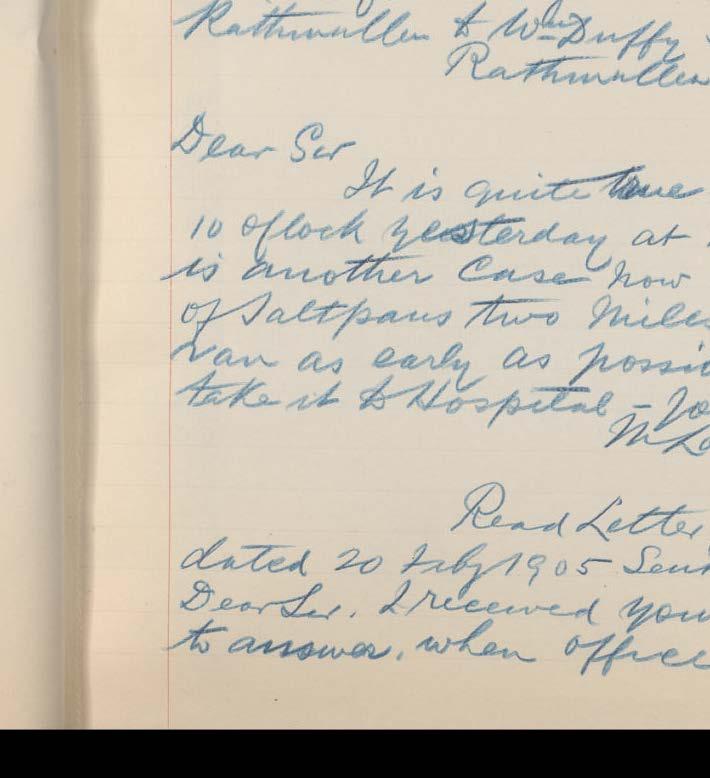 Rathmullen to Wm Duffy
Rathmullen
Dear Sir
It is quite true
10 Oflock yesterday at
is another Case now
of Saltpans two Miles
van as early as possi
take it to Hospital -
Read Letter
dated 20 Feby 1905 Sent
Dear Sir. I received you
to answer. when office